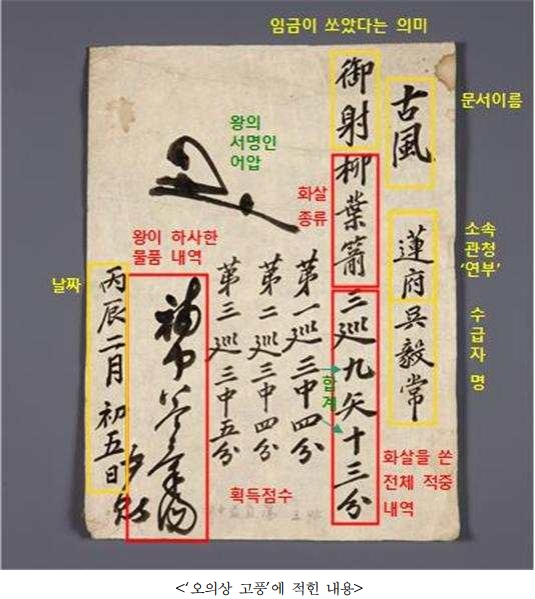 임금이 쏘았다는 의미
문서이름
古風
소속
관청
'연부'
蓮府
수급자 명
吳毅常
御射
화살
종류
柳葉箭
三巡九矢十三分
합계
화살을 쏜
전체 적중
내역
第一巡三中四分
第二巡三中四分
第三巡三中五分
획득점수
왕의
서명인
어압
왕이 하사한
물품 내역
날짜
丙辰二月初五日
<'오의상 고풍'에 적힌 내용>